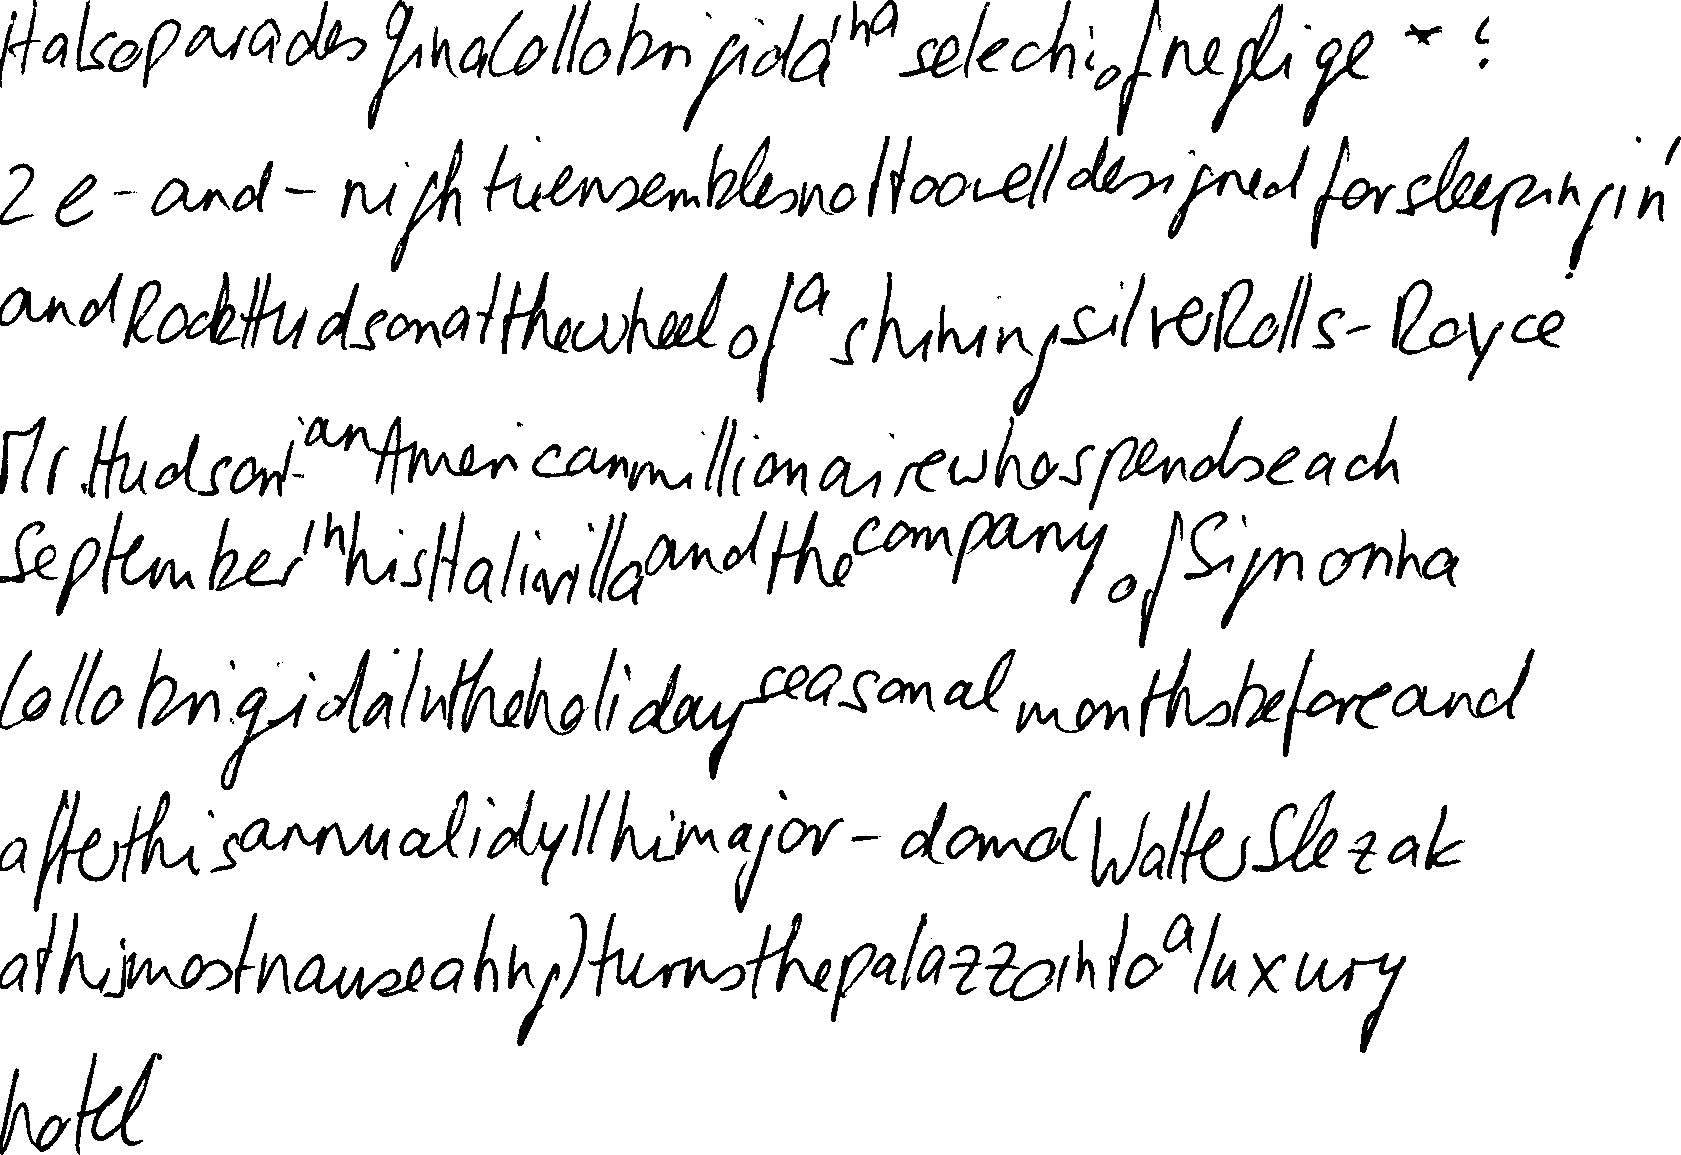 It also parades Gina Lollobrigida in a selecti of neglige
2 e - and - nightie ensembles not too well designed for sleeping in
and Rock Hudson at the wheel of a shining silve Rolls - Royce
Mr. Hudson an American millionaire who spends each
September in his Itali villa and the company of Signorina
Lollobrigida In the holiday seasonal months before and
after this annual idyll hi major - domo Walter Slezak
at his most nauseating ) turns the palazzo into a luxury
hotel